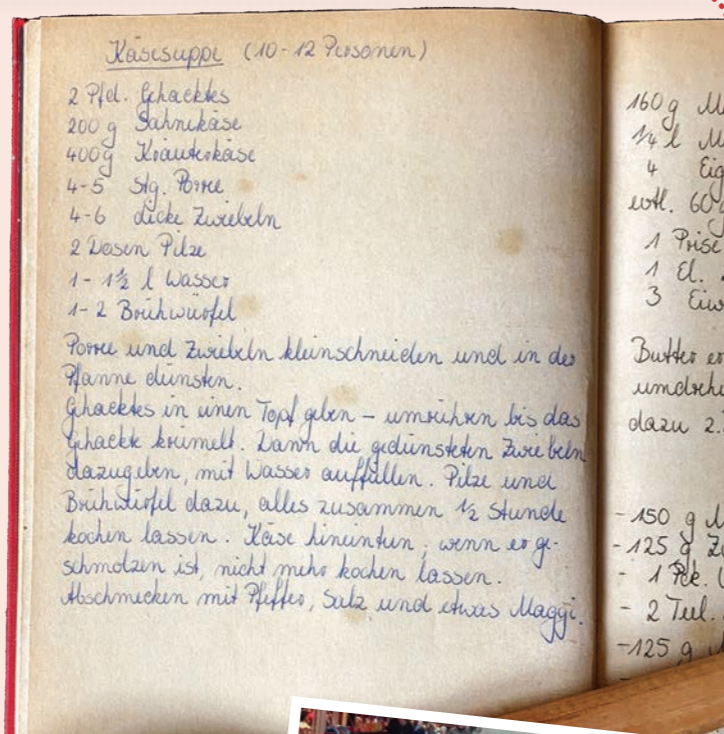 Käsesuppe (10-12 Personen)
2 Pfd. Gehacktes
200 g Sahnekäse
400g Kräuterkäse
4-5 Stg. Porree
4-6 dicke Zwiebeln
2 Dosen Pilze
1-1½ l Wasser
1-2 Brühwürfel
Porree und Zwiebeln kleinschneiden und in der
Pfanne dünsten.
Gehacktes in einen Topf geben – umrühren bis das
Gehackte krümelt. Dann die gedünsteten Zwiebeln
dazugeben, mit Wasser auffüllen. Pilze und
Brühwürfel dazu, alles zusammen ½ Stunde
kochen lassen. Käse hineintun, wenn er ge-
schmolzen ist, nicht mehr kochen lassen.
Abschmecken mit Pfeffer, Salz und etwas Maggi.
160 g
¼ l
4
evtl. 60
1 Prise
1 El.
3
Butter
umdrehe
dazu 2.
-150 g
-125 g
- 1 Pck.
- 2 Teel.
-125 g